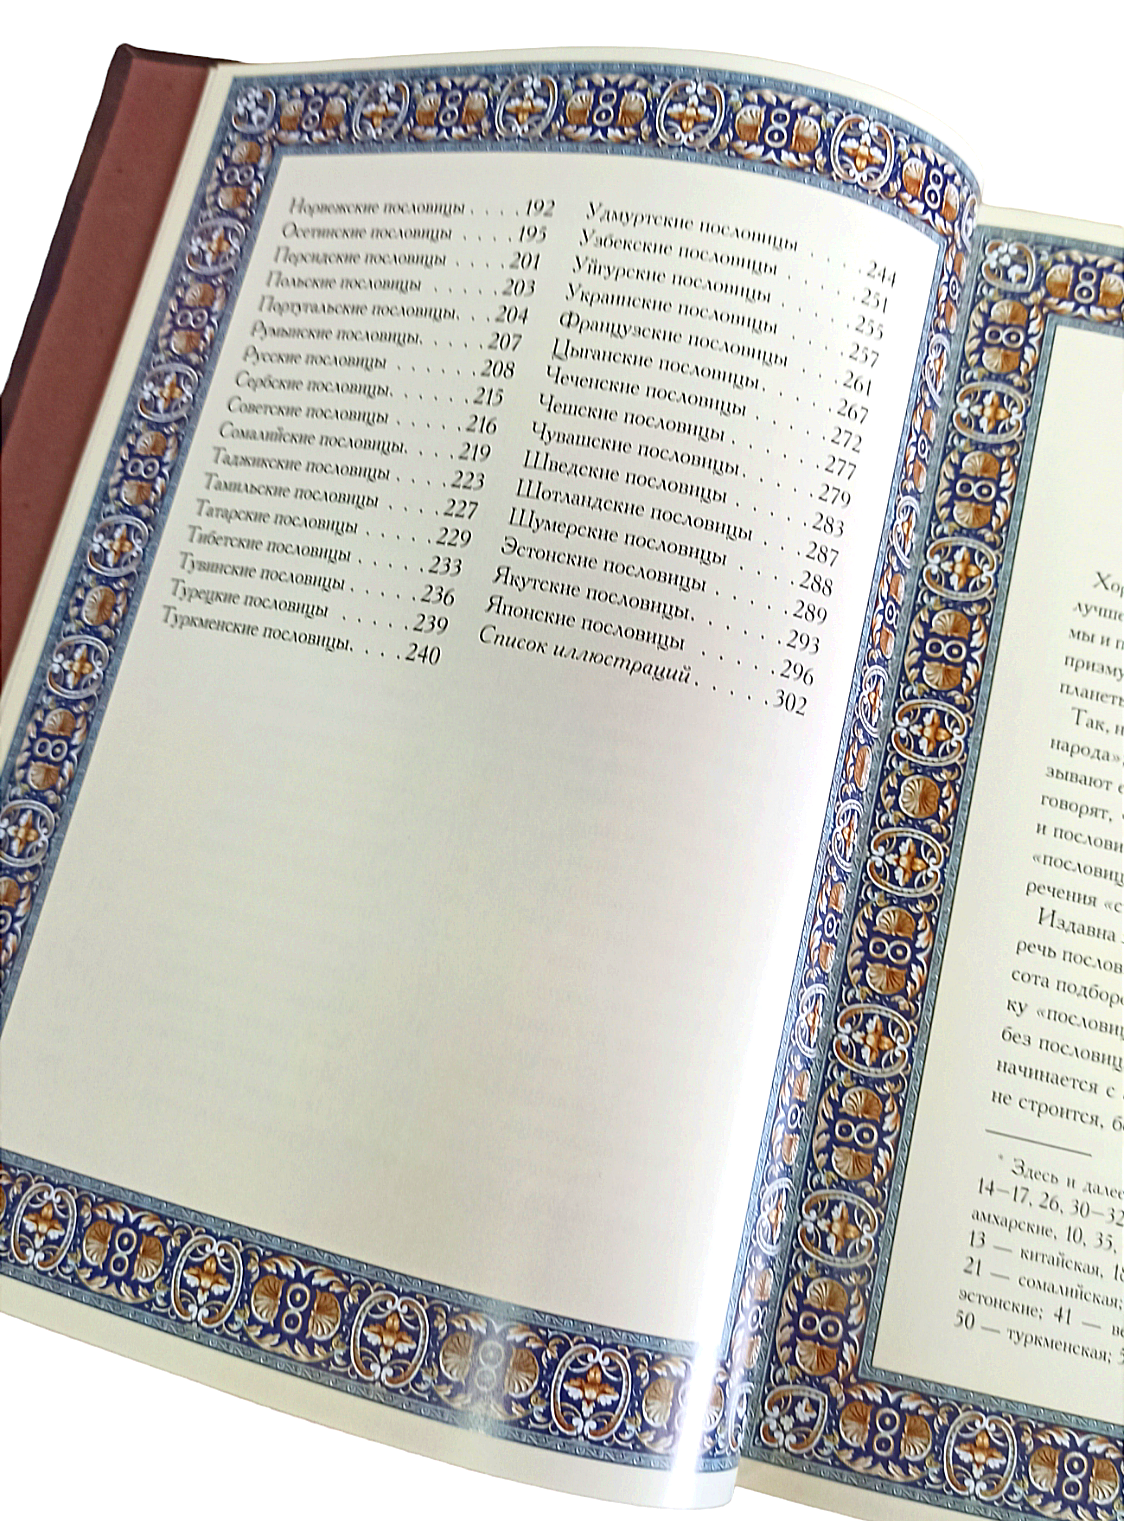 Норвежские пословицы . . . . 192
Осетинские пословицы . . . . 195
Персидские пословицы . . . . 201
Польские пословицы . . . . . 203
Португальские пословицы. . . 204
Румынские пословицы. . . . . 207
Русские пословицы . . . . . . 208
Сербские пословицы. . . . . . 215
Советские пословицы . . . . . 216
Сомалийские пословицы. . . . 219
Таджикские пословицы . . . . 223
Тамильские пословицы . . . . 227
Татарские пословицы . . . . . 229
Тибетские пословицы . . . . . 233
Тувинские пословицы . . . . . 236
Турецкие пословицы . . . . . 239
Туркменские пословицы. . . . 240
Удмуртские пословицы . . . . 244
Узбекские пословицы . . . . . 251
Уйгурские пословицы . . . . . 255
Украинские пословицы . . . . 257
Французские пословицы . . . 261
Цыганские пословицы. . . . . 267
Чеченские пословицы . . . . . 272
Чешские пословицы . . . . . . 277
Чувашские пословицы. . . . . 279
Шведские пословицы . . . . . 283
Шотландские пословицы . . . 287
Шумерские пословицы . . . . 288
Эстонские пословицы . . . . . 289
Якутские пословицы. . . . . . 293
Японские пословицы . . . . . 296
Список иллюстраций . . . . . 302
лучше
мы и
призму
Так,
народа»
зывают
говорят,
и
речения
Издавна
речь
сота
ку
без
начинается с
не строится,
* Здесь и далее
14—17, 26, 30—32
амхарские, 10, 35,
13 — китайская,
21 — сомалийская;
эстонские; 41 —
50 — туркменская;